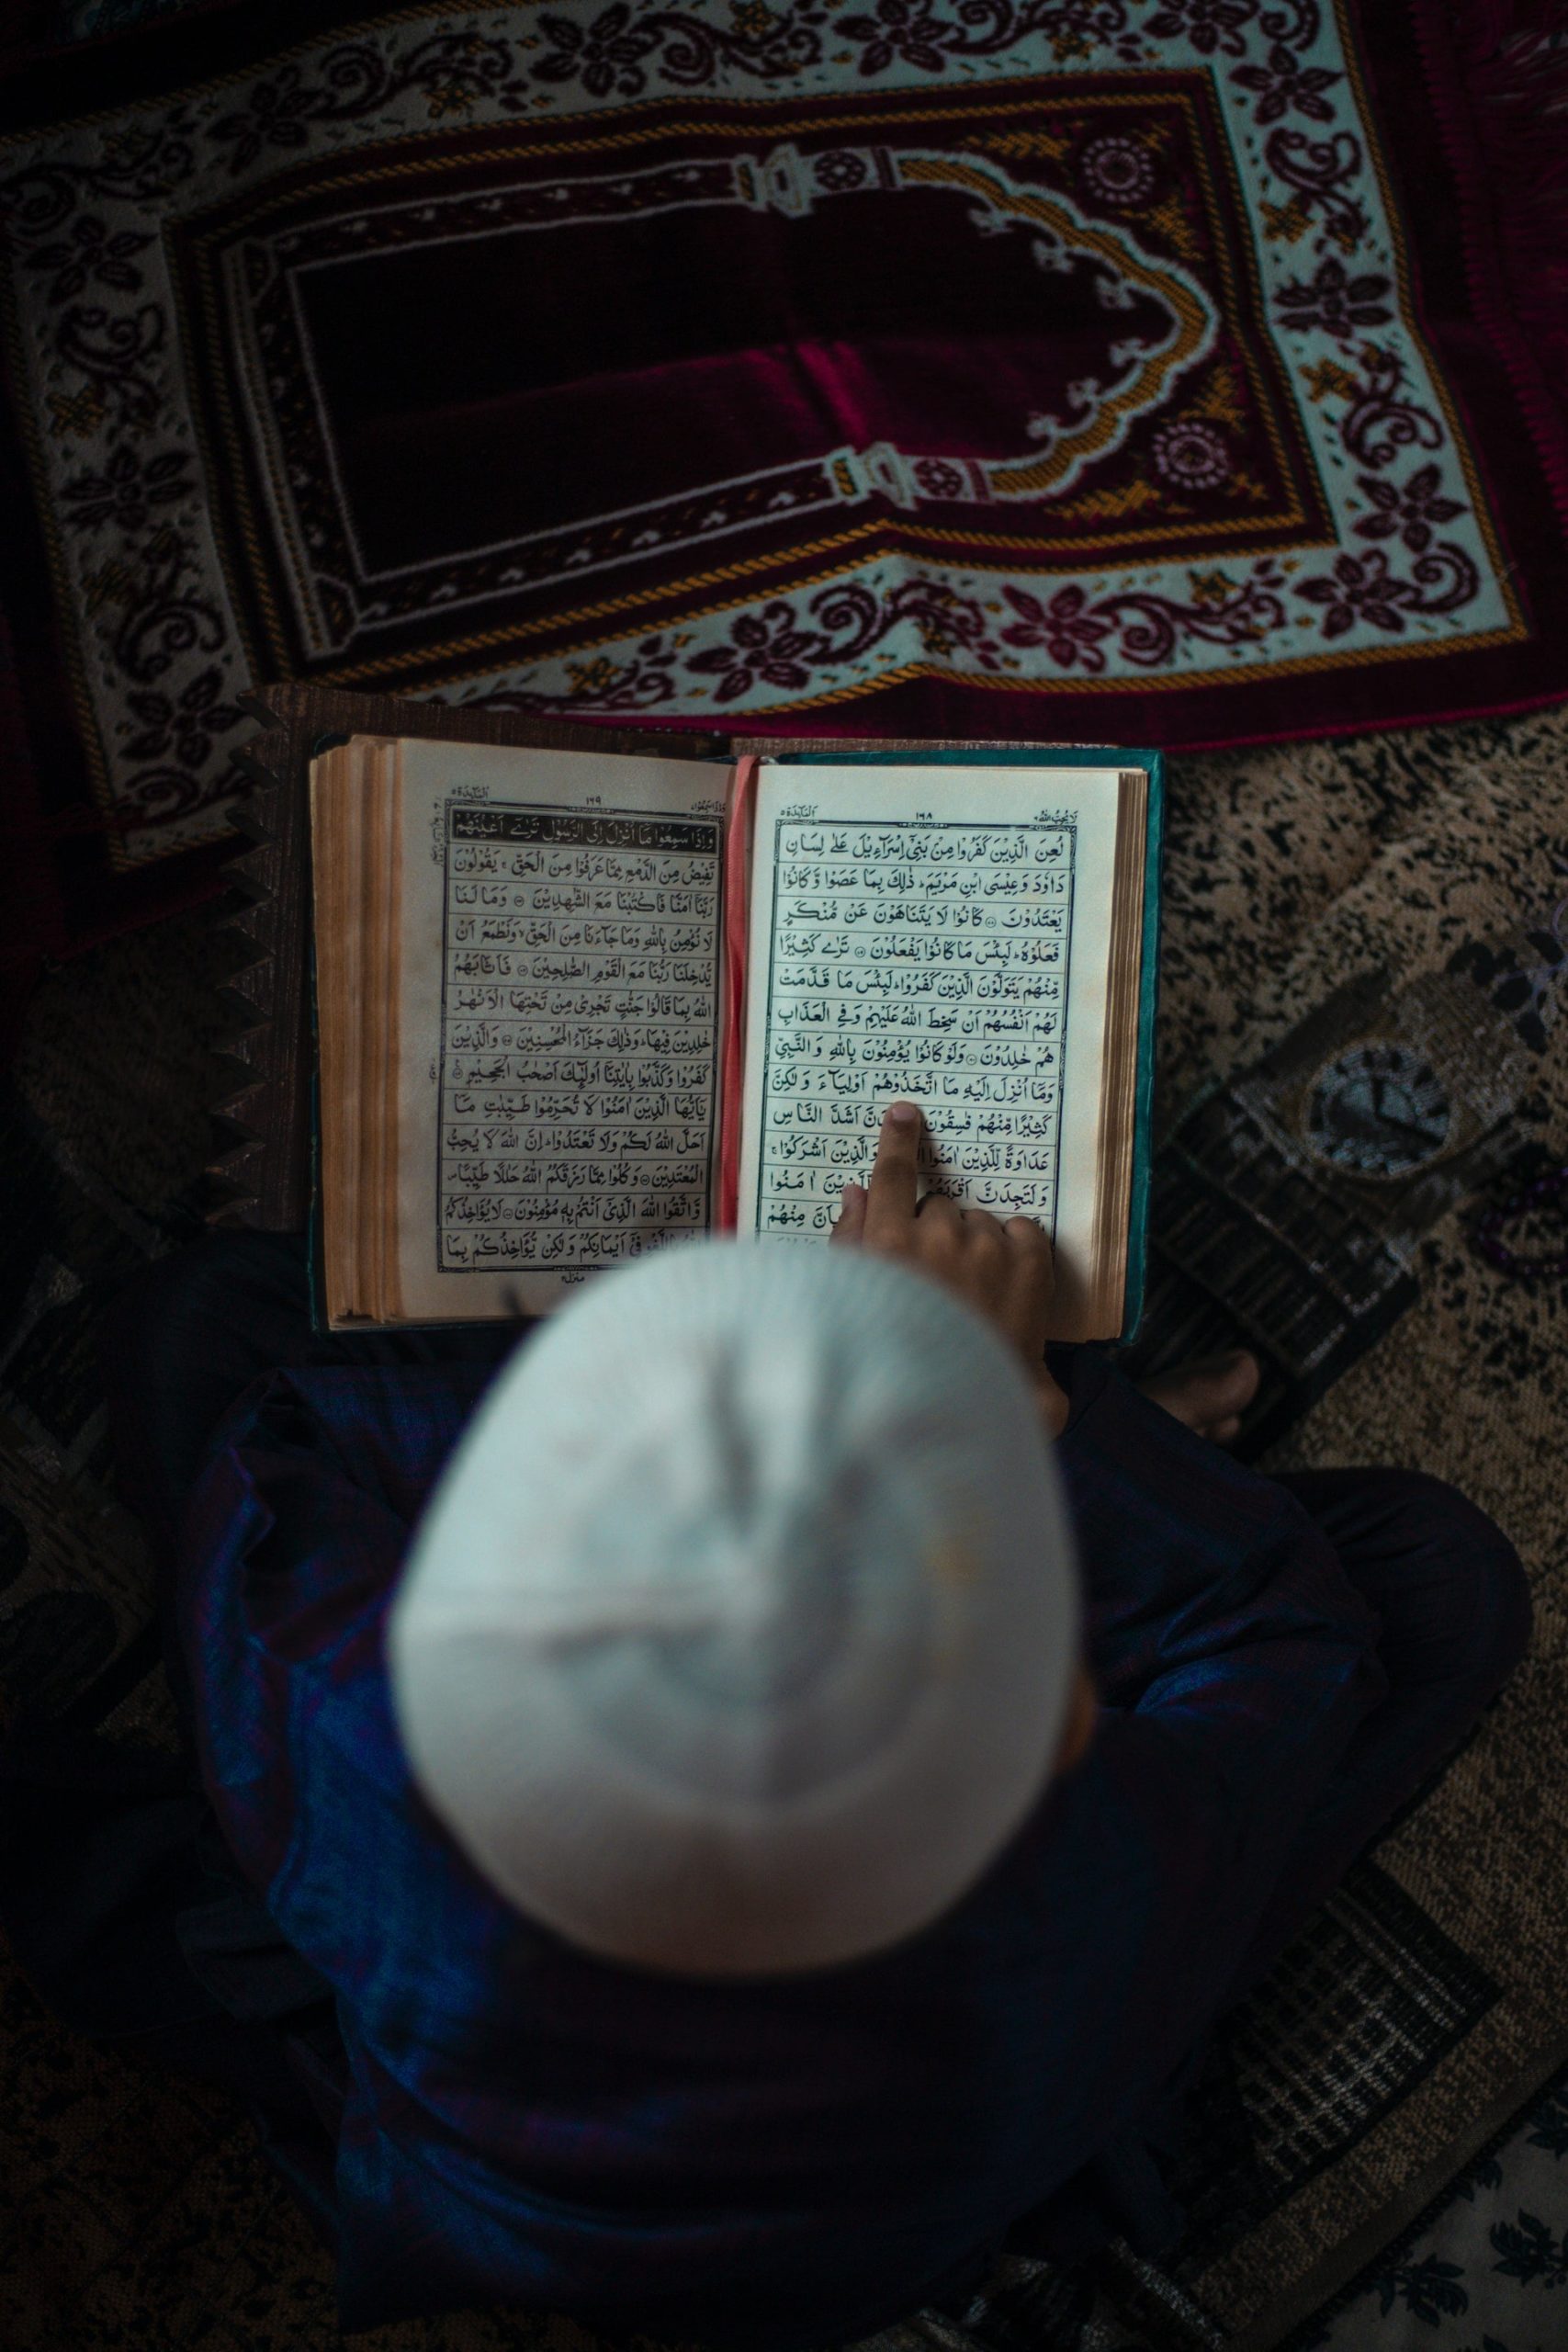 لَا يُحِبُّ اللهُ ٦
١٦٨
اَلْمَآئِدَة ٥
لُعِنَ الَّذِيْنَ كَفَرُوْا مِنْۢ بَنِيْٓ اِسْرَآءِيْلَ عَلٰى لِسَانِ
دَاوٗدَ وَعِيْسَى ابْنِ مَرْيَمَ ؕ ذٰلِكَ بِمَا عَصَوْا وَّكَانُوْا
يَعْتَدُوْنَ ۞ كَانُوْا لَا يَتَنَاهَوْنَ عَنْ مُّنْكَرٍ
فَعَلُوْهُ ؕ لَبِئْسَ مَا كَانُوْا يَفْعَلُوْنَ ۞ تَرٰى كَثِيْرًا
مِّنْهُمْ يَتَوَلَّوْنَ الَّذِيْنَ كَفَرُوْا ؕ لَبِئْسَ مَا قَدَّمَتْ
لَهُمْ اَنْفُسُهُمْ اَنْ سَخِطَ اللهُ عَلَيْهِمْ وَفِي الْعَذَابِ
هُمْ خٰلِدُوْنَ ۞ وَلَوْ كَانُوْا يُؤْمِنُوْنَ بِاللهِ وَالنَّبِيِّ
وَمَآ اُنْزِلَ اِلَيْهِ مَا اتَّخَذُوْهُمْ اَوْلِيَآءَ وَلٰكِنَّ
كَثِيْرًا مِّنْهُمْ فٰسِقُوْنَ اَشَدَّ النَّاسِ
عَدَاوَةً لِّلَّذِيْنَ اٰمَنُوا وَالَّذِيْنَ اَشْرَكُوْا ۚ
وَلَتَجِدَنَّ اَقْرَبَهُمْ اٰمَنُوا
مِنْهُمْ
وَاِذَا سَمِعُوْا ٧
١٦٩
اَلْمَآئِدَة ٥
وَاِذَا سَمِعُوْا مَآ اُنْزِلَ اِلَى الرَّسُوْلِ تَرٰٓى اَعْيُنَهُمْ
تَفِيْضُ مِنَ الدَّمْعِ مِمَّا عَرَفُوْا مِنَ الْحَقِّ ۚ يَقُوْلُوْنَ
رَبَّنَآ اٰمَنَّا فَاكْتُبْنَا مَعَ الشّٰهِدِيْنَ ۞ وَمَا لَنَا
لَا نُؤْمِنُ بِاللهِ وَمَا جَآءَنَا مِنَ الْحَقِّ ۙ وَنَطْمَعُ اَنْ
يُّدْخِلَنَا رَبُّنَا مَعَ الْقَوْمِ الصّٰلِحِيْنَ ۞ فَاَثَابَهُمُ
اللهُ بِمَا قَالُوْا جَنّٰتٍ تَجْرِيْ مِنْ تَحْتِهَا الْاَنْهٰرُ
خٰلِدِيْنَ فِيْهَا ؕ وَذٰلِكَ جَزَآءُ الْمُحْسِنِيْنَ ۞ وَالَّذِيْنَ
كَفَرُوْا وَكَذَّبُوْا بِاٰيٰتِنَآ اُولٰٓئِكَ اَصْحٰبُ الْجَحِيْمِ ۞
يٰٓاَيُّهَا الَّذِيْنَ اٰمَنُوْا لَا تُحَرِّمُوْا طَيِّبٰتِ مَآ
اَحَلَّ اللهُ لَكُمْ وَلَا تَعْتَدُوْا ؕ اِنَّ اللهَ لَا يُحِبُّ
الْمُعْتَدِيْنَ ۞ وَكُلُوْا مِمَّا رَزَقَكُمُ اللهُ حَلٰلًا طَيِّبًا ۪
وَّاتَّقُوا اللهَ الَّذِيْٓ اَنْتُمْ بِهٖ مُؤْمِنُوْنَ ۞ لَا يُؤَاخِذُكُمُ
فِيْٓ اَيْمَانِكُمْ وَلٰكِنْ يُّؤَاخِذُكُمْ بِمَا
منزل ٢